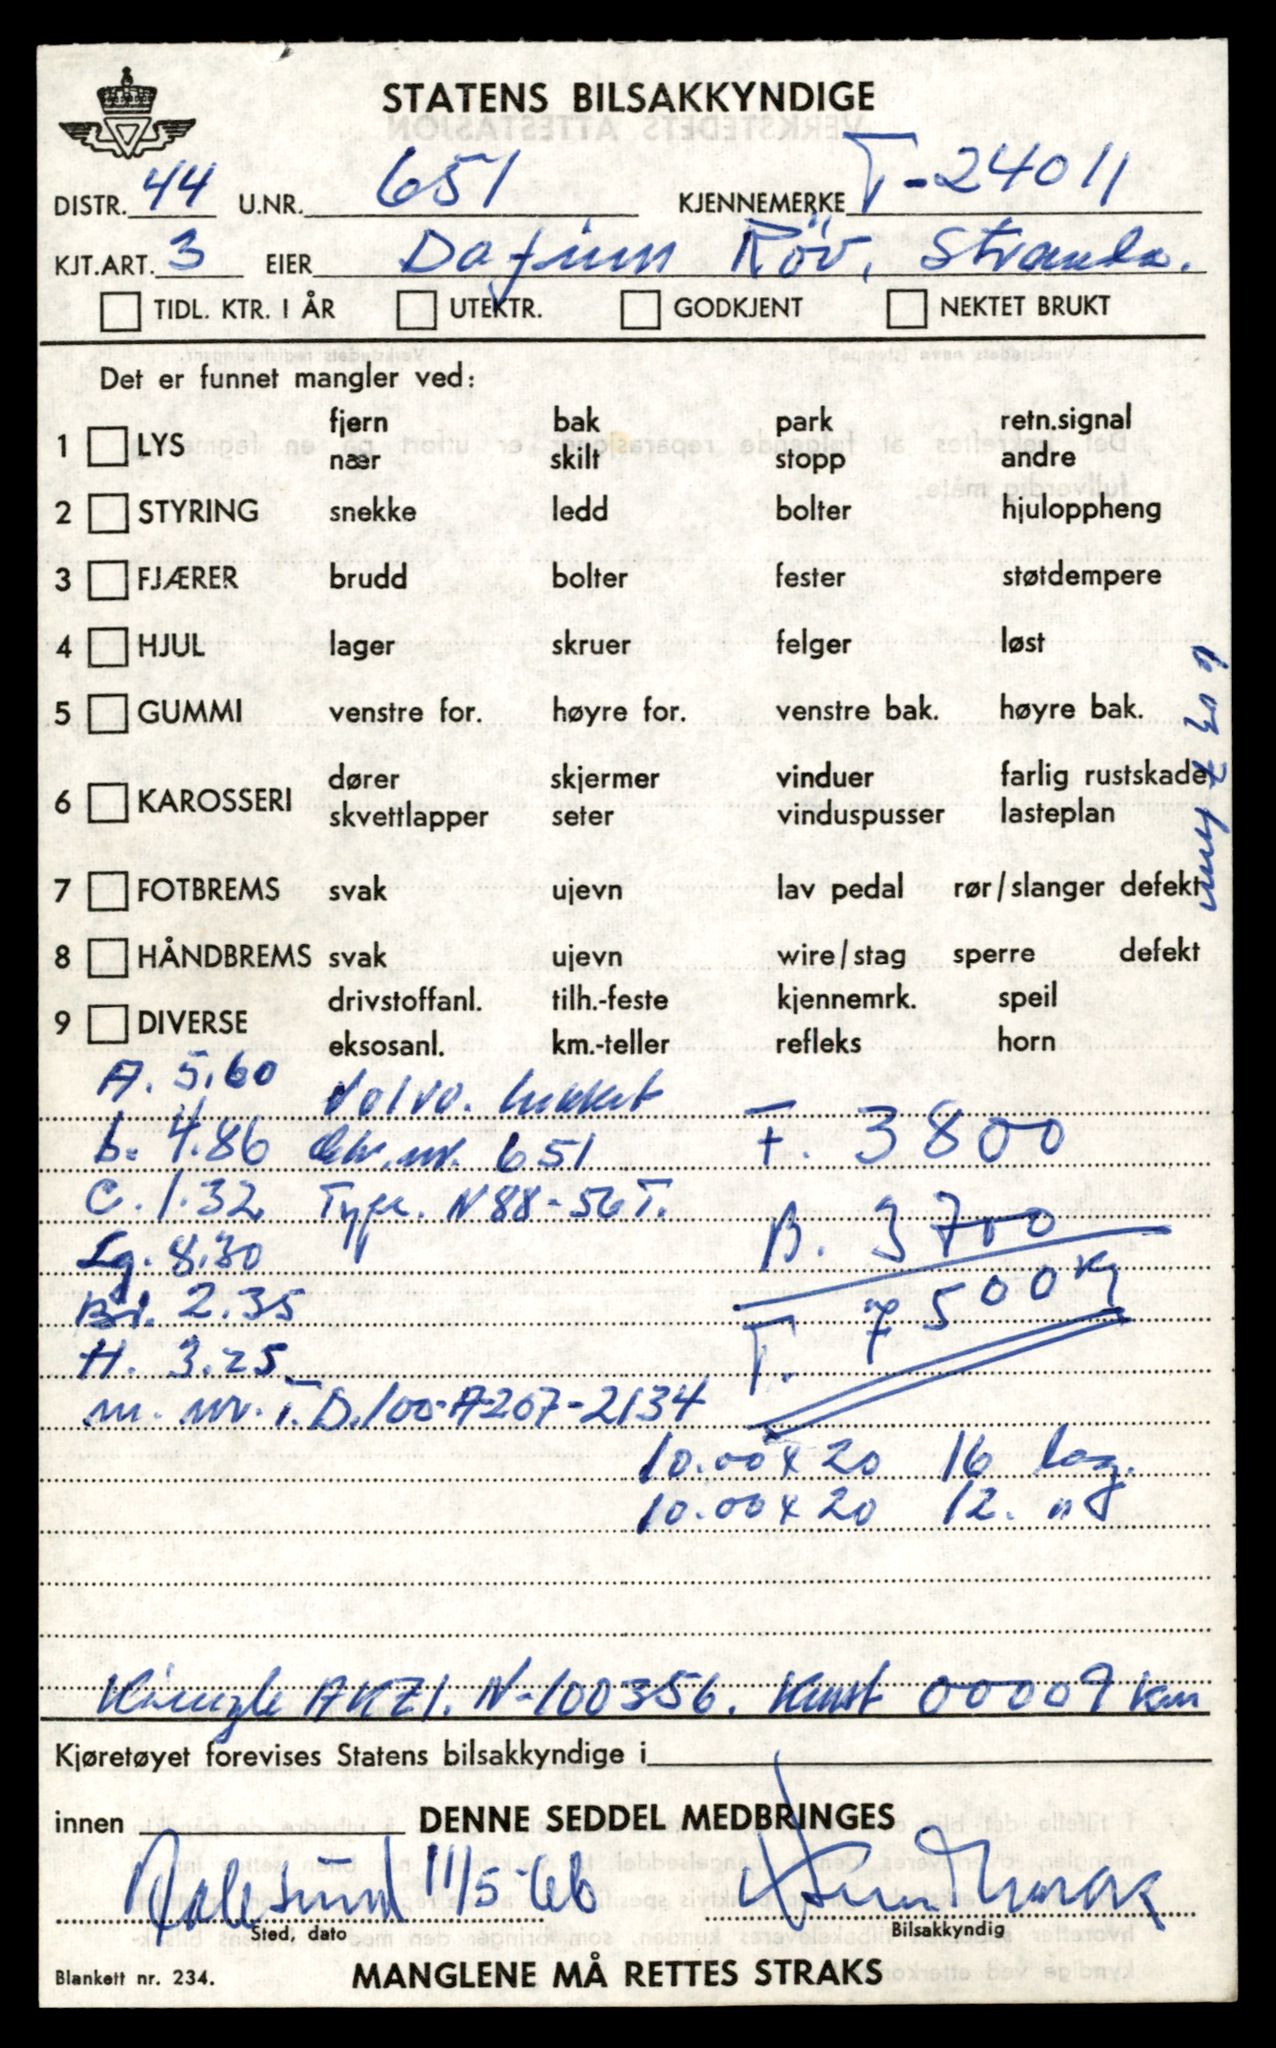 STATENS BILSAKKYNDIGE
DISTR. 44 U.NR. 651 KJENNEMERKE T-24011
KJT.ART. 3 EIER Dafinn Röv, Stranda.
TIDL. KTR. I ÅR UTEKTR. GODKJENT NEKTET BRUKT
Det er funnet mangler ved:
1 LYS fjern bak park retn.signal
nær skilt stopp andre
2 STYRING snekke ledd bolter hjuloppheng
3 FJÆRER brudd bolter fester støtdempere
4 HJUL lager skruer felger løst
5 GUMMI venstre for. høyre for. venstre bak. høyre bak.
6 KAROSSERI dører skjermer vinduer farlig rustskade
skvettlapper seter vinduspusser lasteplan
7 FOTBREMS svak ujevn lav pedal rør/slanger defekt
8 HÅNDBREMS svak ujevn wire/stag sperre defekt
9 DIVERSE drivstoffanl. tilh.-feste kjennemrk. speil
eksosanl. km.-teller refleks horn
A. 5.60 Volvo. lukket
b. 4.86 Chr.nr. 651 F. 3800
C. 1.32 Type. N88-56T.
B. 3700
Lg. 8.30
Br. 2.35 T. 7500 kg
H. 3.25
m. nr. T.D.100-A-207-2134
10.00 x 20 16 lag.
10.00 x 20 12. "
Kienzle AKZ1. N-100356. 00009 km
Kjøretøyet forevises Statens bilsakkyndige i
innen DENNE SEDDEL MEDBRINGES
Aalesund 11/5-66
Sted, dato Bilsakkyndig
Blankett nr. 234. MANGLENE MÅ RETTES STRAKS